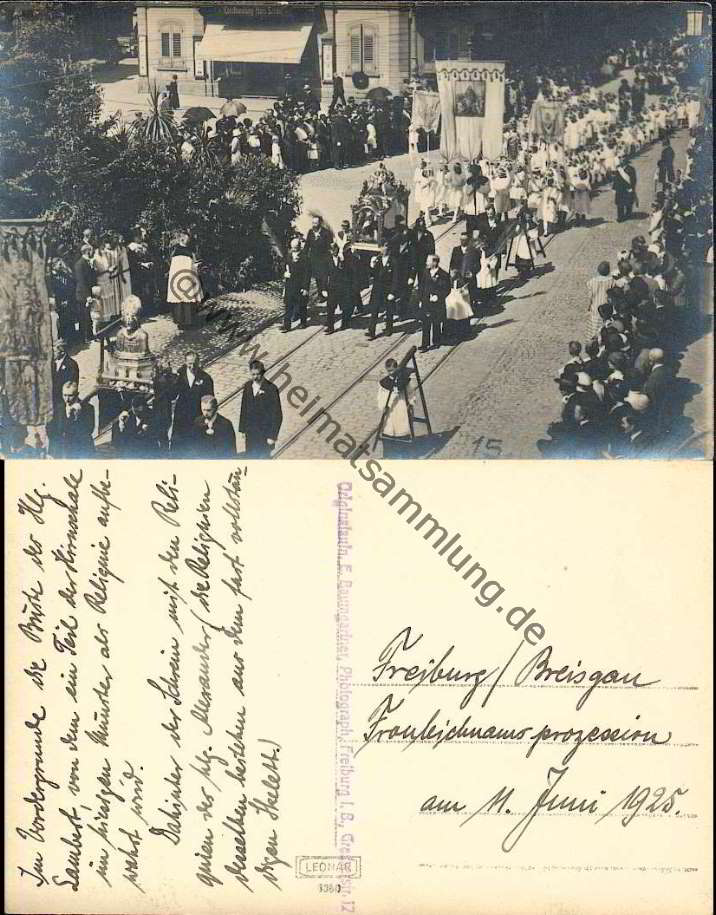 15
@www.heimatsammlung.de
Im Vordergrunde die Büste des Hlg.
Lambert, von dem ein Teil der Hirnschale
im hiesigen Münster als Reliquie aufbe-
wahrt wird.
Dahinter der Schrein mit den Reli-
quien des hlg. Alexander (die Reliquien
desselben bestehen aus dem fast vollstän-
digen Skelett.)
Originalaufn. E. Baumgartner, Photograph, Freiburg i. B.,
LEONAR
Freiburg/Breisgau
Fronleichnamsprozession
am 11. Juni 1925.